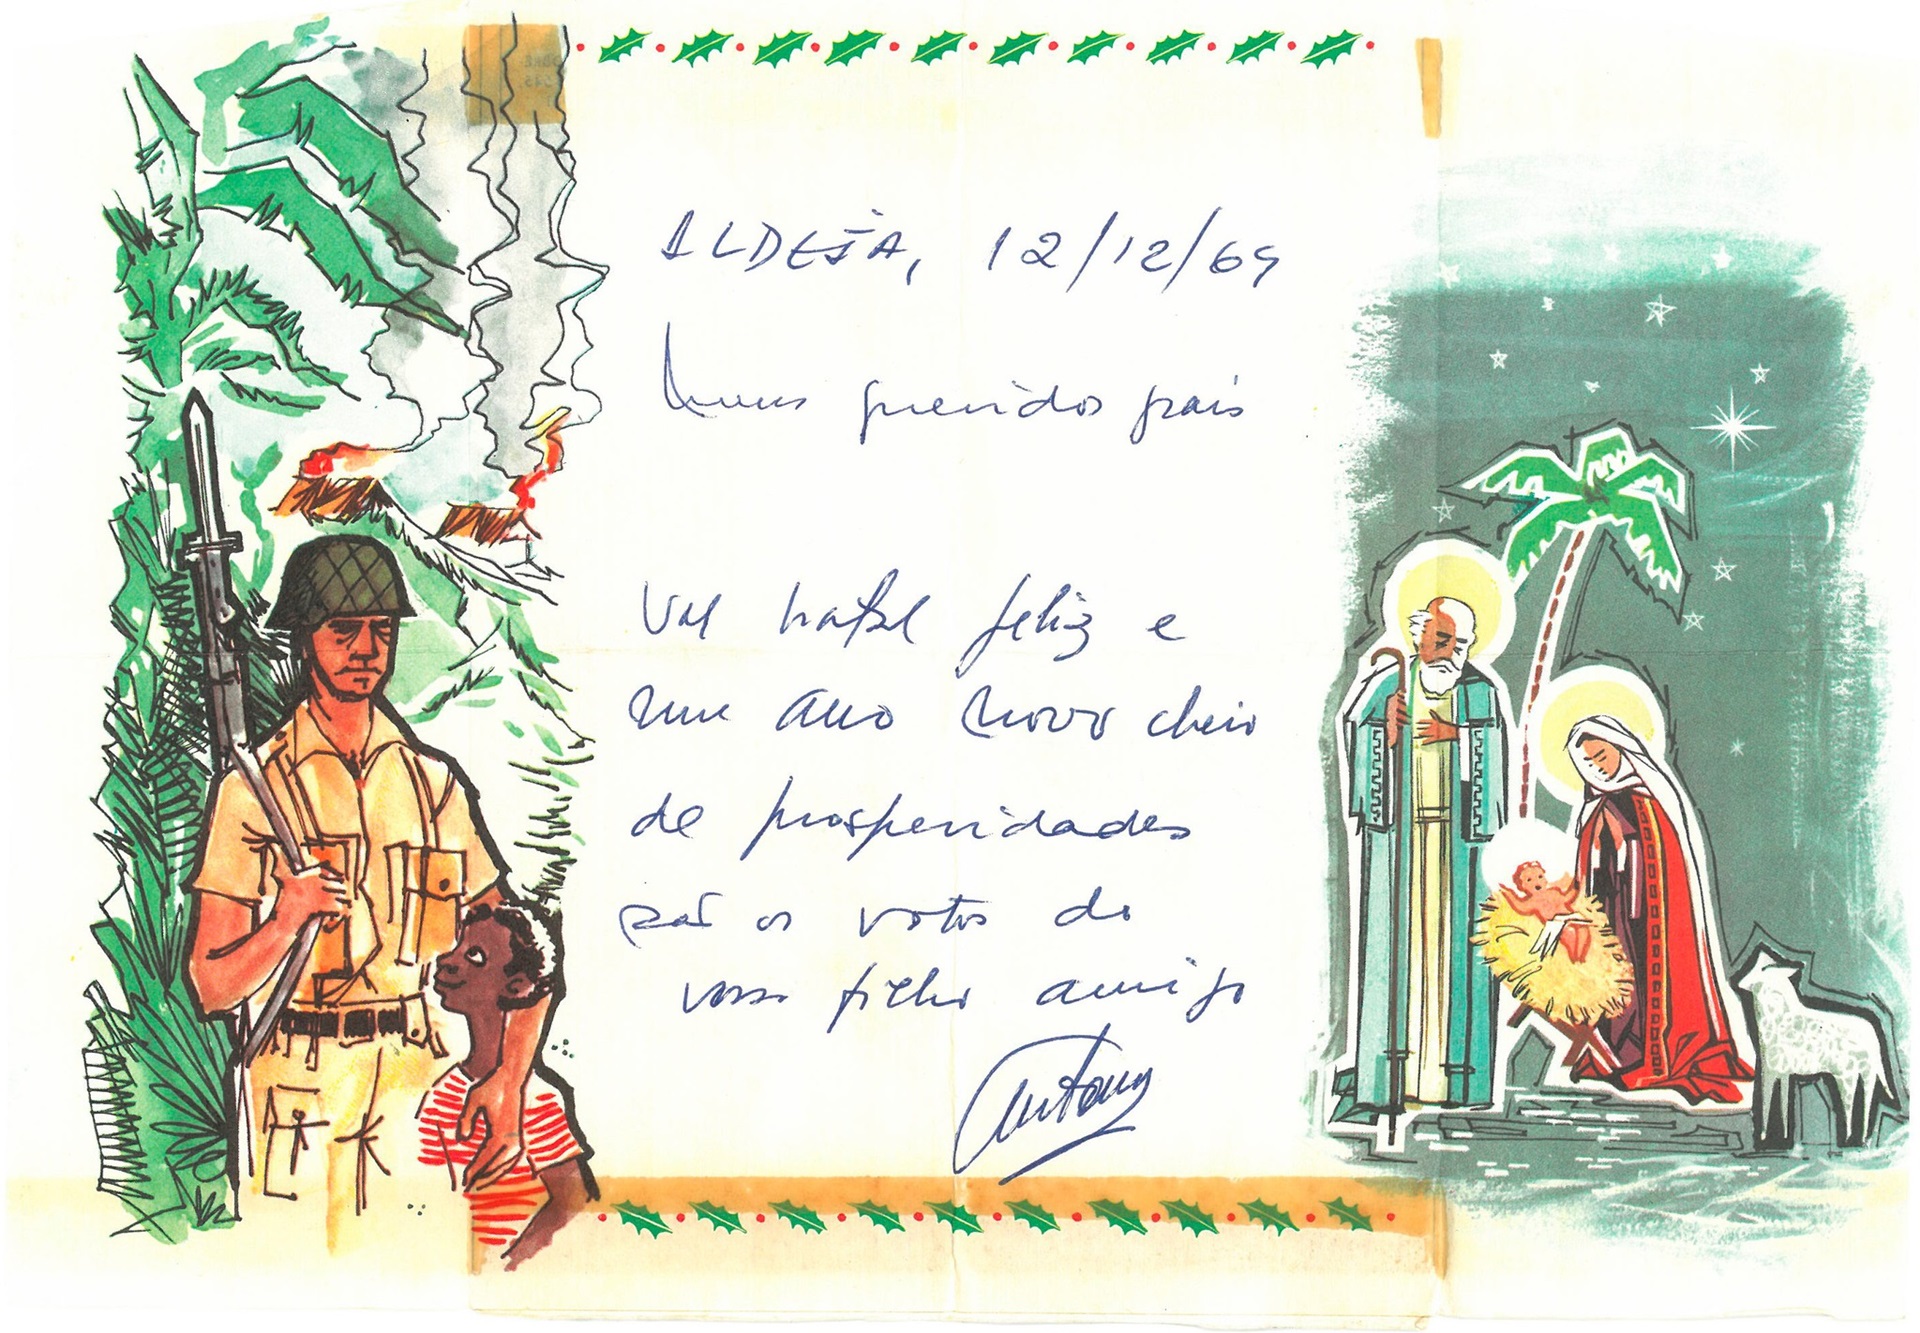 ALDEIA, 12/12/69
Meus queridos pais
Um natal feliz e
um ano novo cheio
de prosperidades
são os votos do
vosso filho amigo